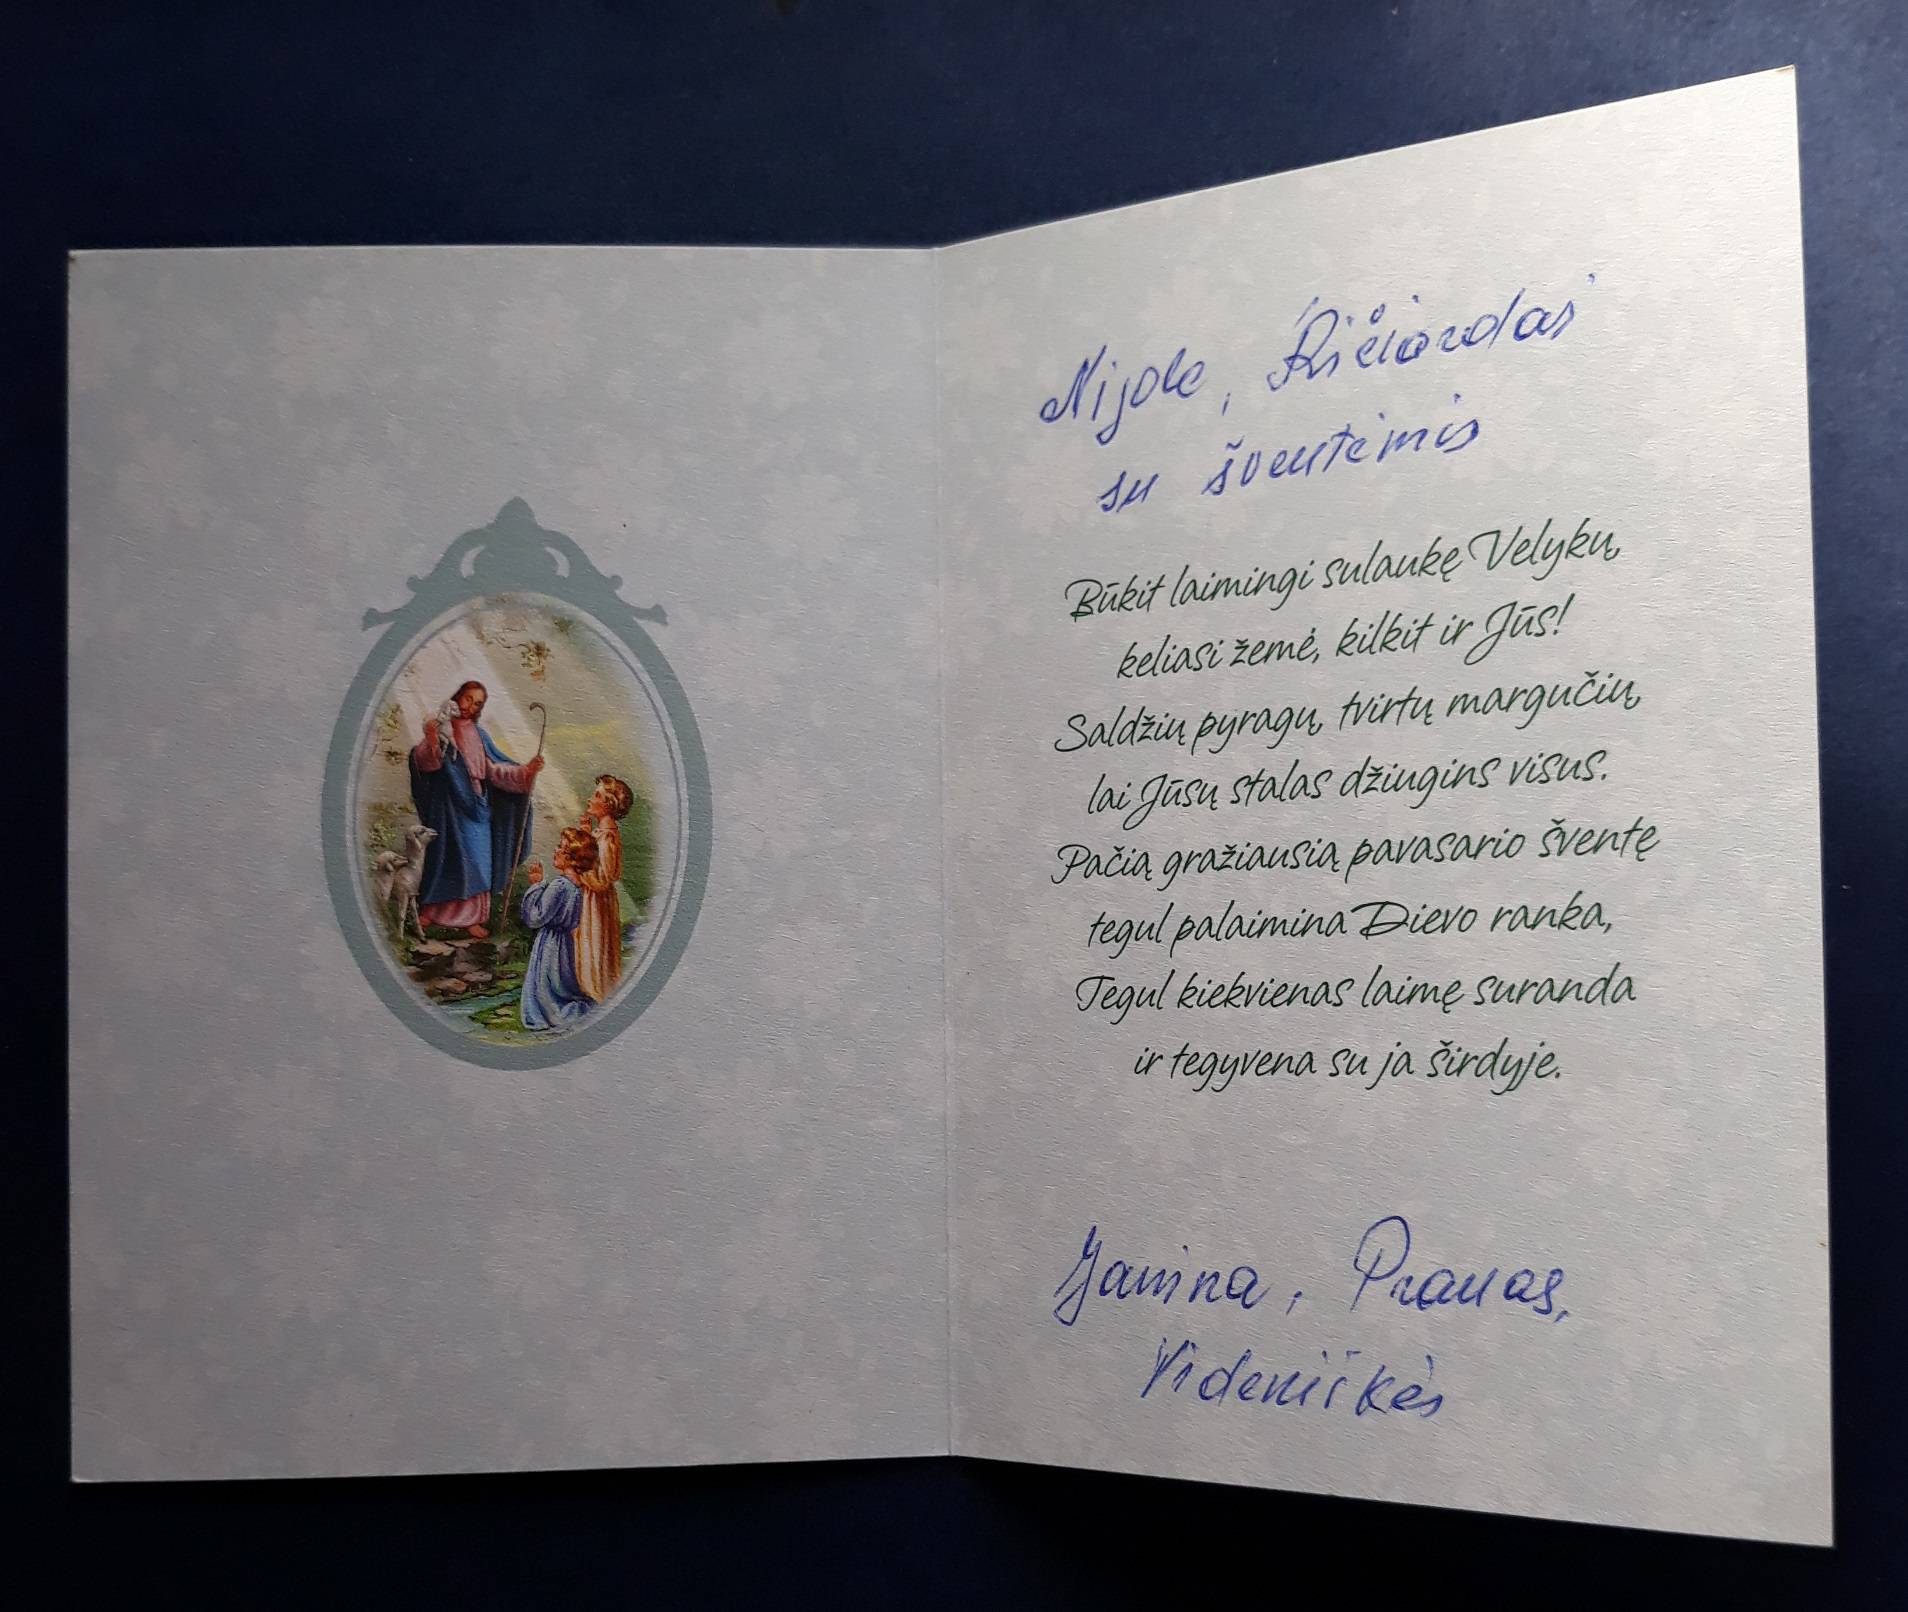 Nijole, Ričiardas
su šventėmis
Būkit laimingi sulaukę Velykų,
keliasi žemė, kilkit ir Jūs!
Saldžių pyragų, tvirtų margučių,
lai Jūsų stalas džiugins visus.
Pačią gražiausią pavasario šventę
tegul palaimina Dievo ranka,
Tegul kiekvienas laimę suranda
ir tegyvena su ja širdyje.
Janina, Pranas,
Videniškės